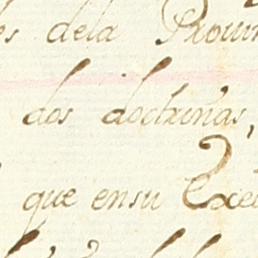 es dela Provin
dos doctrinas,
que ensu Exe